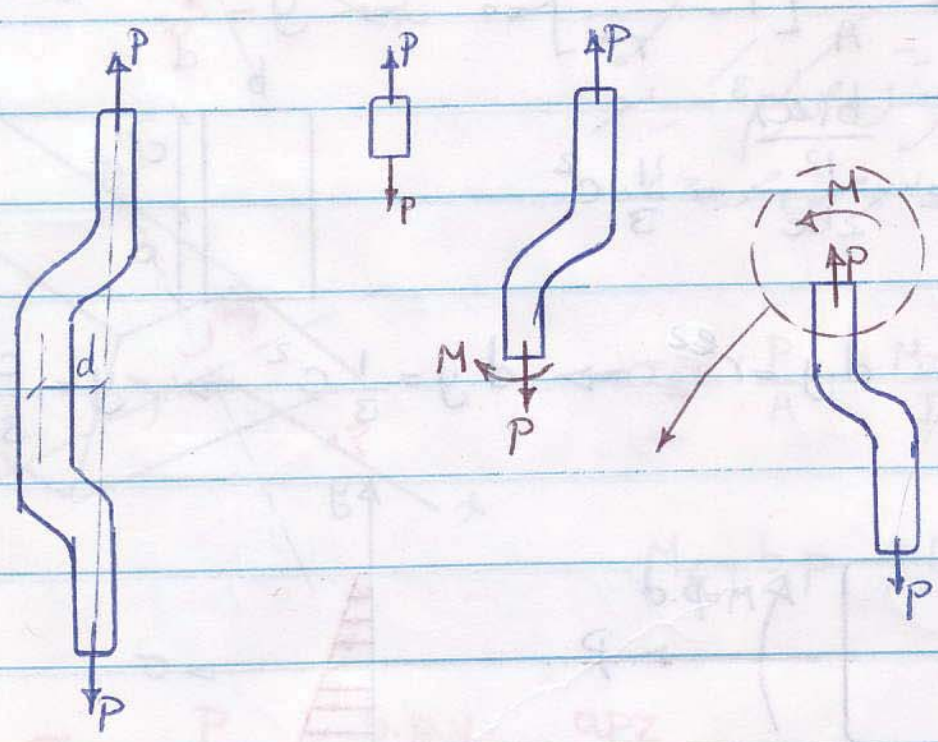 P
d
P
P
P
P
M
P
M
P
P